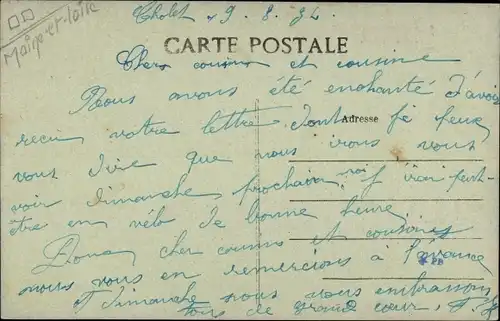 Maine-et-Loire
Cholet 9. 8. 34
CARTE POSTALE
Chers cousins et cousine
Nous avons été enchanté d'avoir
recu votre lettre dont je peux
Adresse
vous dire que nous irons vous
voir dimanche prochain j'irai peut-
être en vélo de bonne heure
Donc cher cousins et cousines
nous vous en remercions à l'avance
dimanche nous vous embrassons
tous de grand cœur